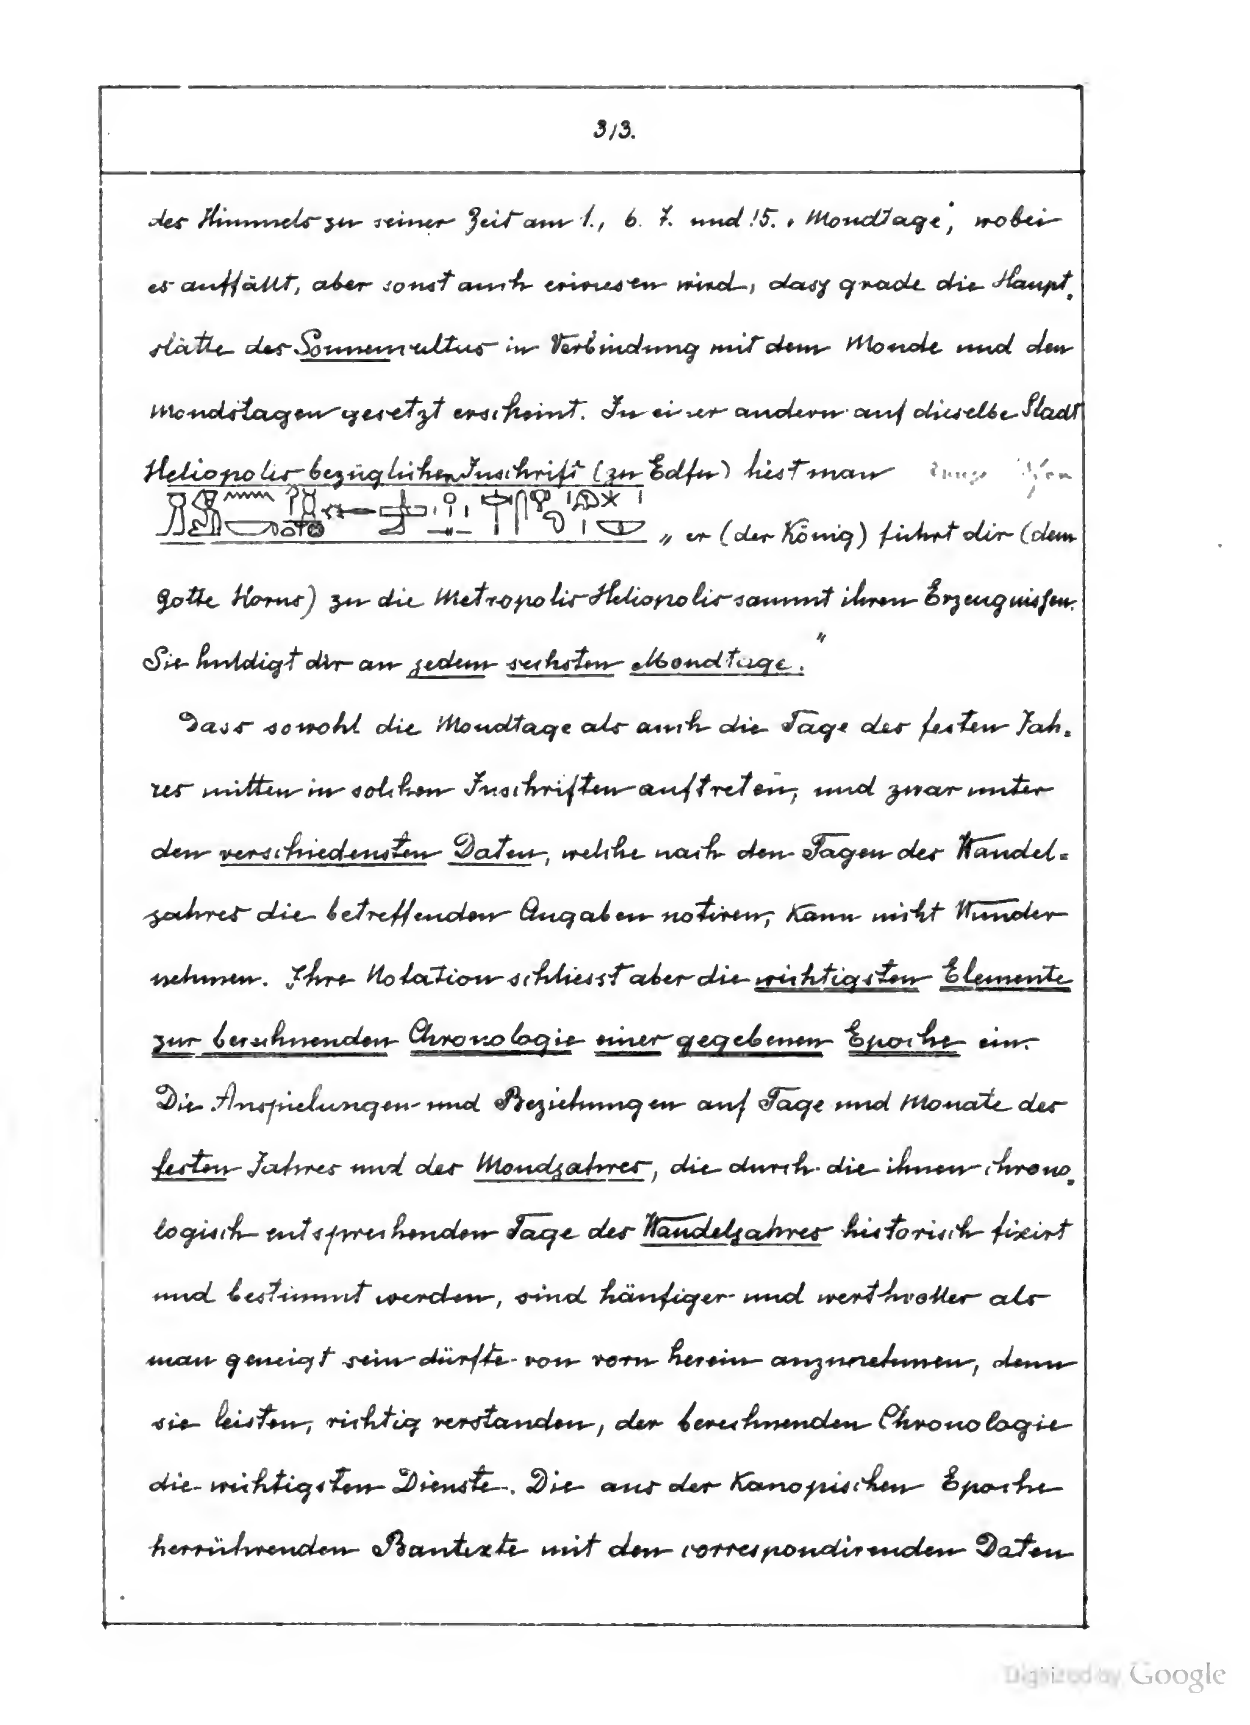 313.
des Himmels zu seiner Zeit am 1., 6. 7. und 15. Mondtage", wobei
es auffällt, aber sonst auch erwiesen wird, dass grade die Haupt-
stätte des Sonnencultus in Verbindung mit dem Monde und den
Mondstagen gesetzt erscheint. In einer andern auf dieselbe Stadt
Heliopolis bezüglichen Inschrift (zu Edfu) liest man
„ er (der König) führt dir (dem
Gotte Horus) zu die Metropolis Heliopolis sammt ihren Erzeugnissen.
Sie huldigt dir an jedem sechsten Mondtage."
Dass sowohl die Mondtage als auch die Tage des festen Jah-
res mitten in solchen Inschriften auftreten, und zwar unter
den verschiedensten Daten, welche nach den Tagen des Wandel=
jahres die betreffenden Angaben notiren, kann nicht Wunder
nehmen. Ihre Notation schliesst aber die wichtigsten Elemente
zur berechnenden Chronologie einer gegebenen Epoche ein.
Die Anspielungen und Beziehungen auf Tage und Monate des
festen Jahres und des Mondjahres, die durch die ihnen chrono-
logisch entsprechenden Tage des Wandeljahres historisch fixirt
und bestimmt werden, sind häufiger und werthvoller als
man geneigt sein dürfte von vorn herein anzunehmen, denn
sie leisten, richtig verstanden, der berechnenden Chronologie
die wichtigsten Dienste. Die aus der Kanopischen Epoche
herrührenden Bautexte mit den correspondirenden Daten
Digitized by Google